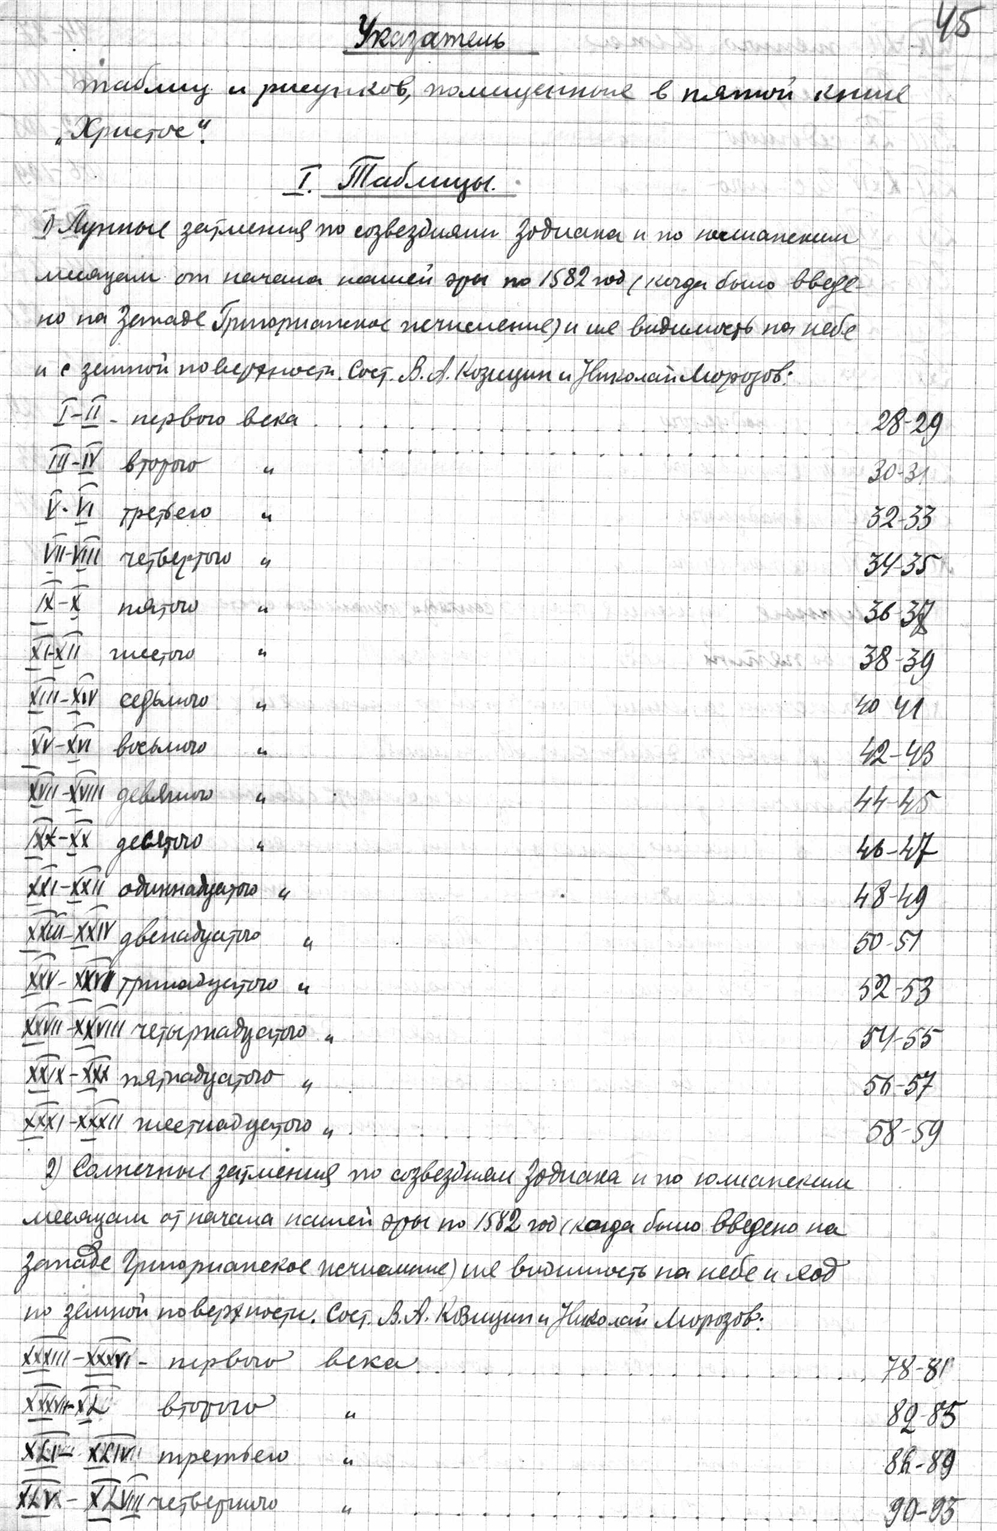 45
Указатель
таблиц и рисунков, помещенные в пятой книге
„Христос“.
I. Таблицы.
1) Лунные затмения по созвездиями Зодиака и по юлианским
месяцам от начала нашей эры по 1582 год (когда было введе-
но на Западе Григорианское исчисление) и их видимость на небе
и с земной поверхности. Сост. В. А. Козицин и Николай Морозов:
I-II - первого века . . . . . . . . . . 28-29
III-IV второго " 30-31
V-VI третьего " 32-33
VII-VIII четвертого " 34-35
IX-X пятого " 36-37
XI-XII шестого " 38-39
XIII-XIV седьмого " 40 41
XV-XVI восьмого " 42-43
XVII-XVIII девятого " 44-45
XIX-XX десятого " 46-47
XXI-XXII одиннадцатого " 48-49
XXIII-XXIV двенадцатого " 50-51
XXV-XXVI тринадцатого " 52-53
XXVII-XXVIII четырнадцатого " 54-55
XXIX-XXX пятнадцатого " 56-57
XXXI-XXXII шестнадцатого " . . . . . . . . . . 58-59
2) Солнечные затмения по созвездиям Зодиака и по юлианским
месяцам от начала нашей эры по 1582 год (когда было введено на
Западе Григорианское исчисление) их видимость на небе и ход
по земной поверхности. Сост. В. А. Козицин и Николай Морозов:
XXXIII-XXXVI - первого века . . . . . . . . . . 78-81
XXXVII-XL второго " 82-85
XLI-XLIV третьего " 86-89
XLV-XLVIII четвертого " . . . . . . . . . . 90-93